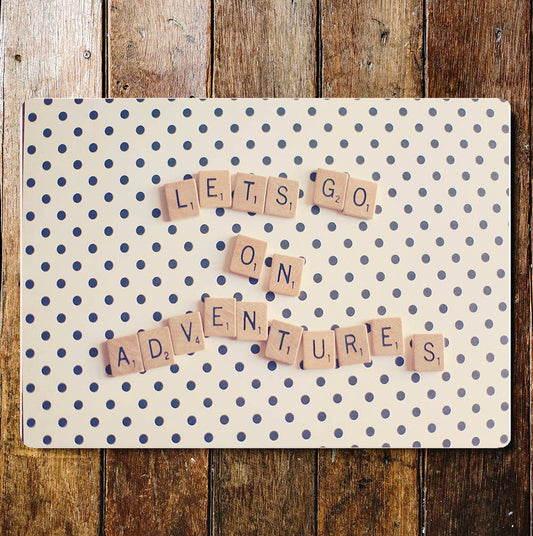 LETS GO
ON
ADVENTURES